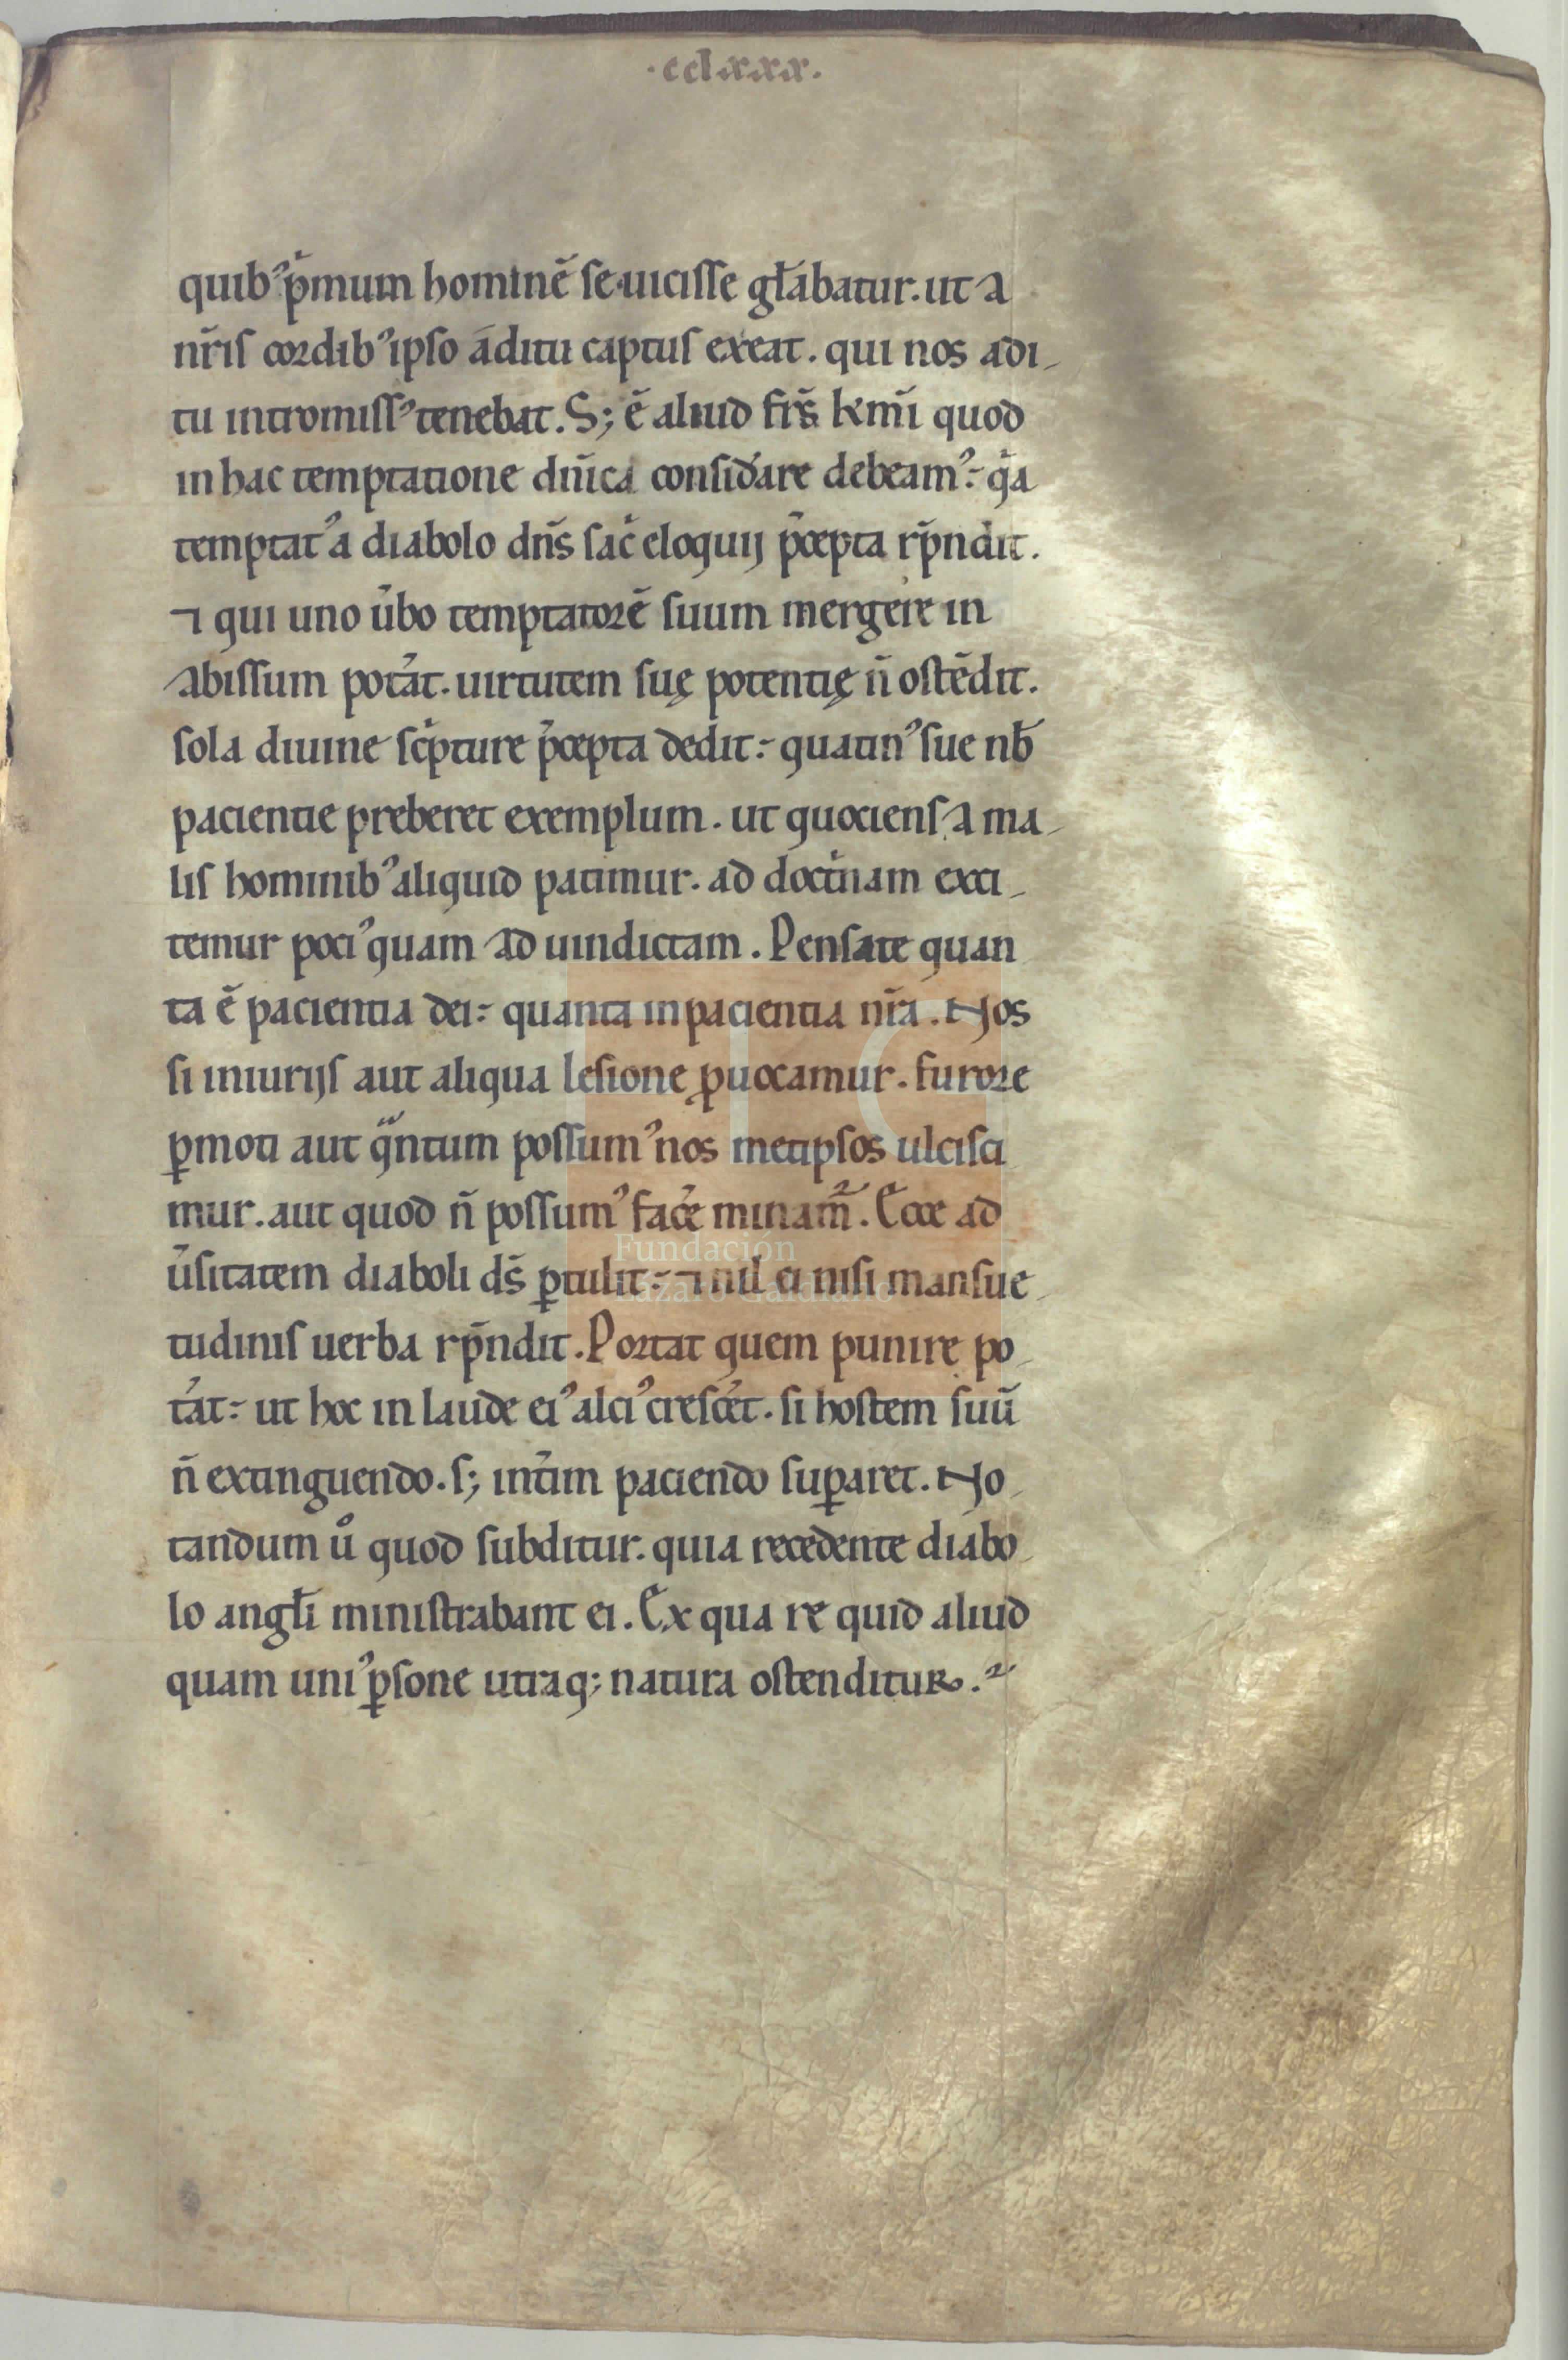 ·cclxxx.
quibꝰ pͥmum hominē se uicisse gl̄abatur. ut a
nr̄is cordibꝰ ipso āditu captus exeat. qui nos adi-
tu intromissꝰ tenebat. S; ē aliud frs̄ km̄i quod
in hac temptatione dn̄ica consid̓are debeamꝰ: qͣa
temptatꝰ a diabolo dn̄s sac̓ eloquij p̄cepta rp̄ndit.
⁊ qui uno u̓bo temptatorē suum mergere in
abissum pot̓at. uirtutem suę potentię n̄ ostēdit.
sola diuine sc̓pture p̄cepta dedit: quatinꝰ sue nb̄
pacientie preberet exemplum. ut quociens a ma-
lis hominibꝰ aliquid patimur. ad doctͥnam exci-
temur pociꝰ quam ad uindictam. Pensate quan
ta ē pacientia dei: quanta inpacientia nr̄a. Nos
si iniurijs aut aliqua lesione ꝓuocamur. furore
ꝑmoti aut qͣntum possumꝰ nos metipsos ulcisci
mur. aut quod n̄ possumꝰ fac̓e minam̄ᷣ. Ecce ad
u̓sitatem diaboli ds̄ ꝑtulit: ⁊ nil ei nisi mansue-
tudinis uerba rp̄ndit. Portat quem punire po-
t̓at: ut hoc in laude eiꝰ alciꝰ cresc̓et. si hostem suū
n̄ extinguendo. s; int̓im paciendo suꝑaret. No-
tandum uͦ quod subditur. quia recedente diabo-
lo angl̄i ministrabant ei. Ex qua re quid aliud
quam uniꝰ ꝑsone utraq; natura ostenditur.
Fundación
Lázaro Galdiano